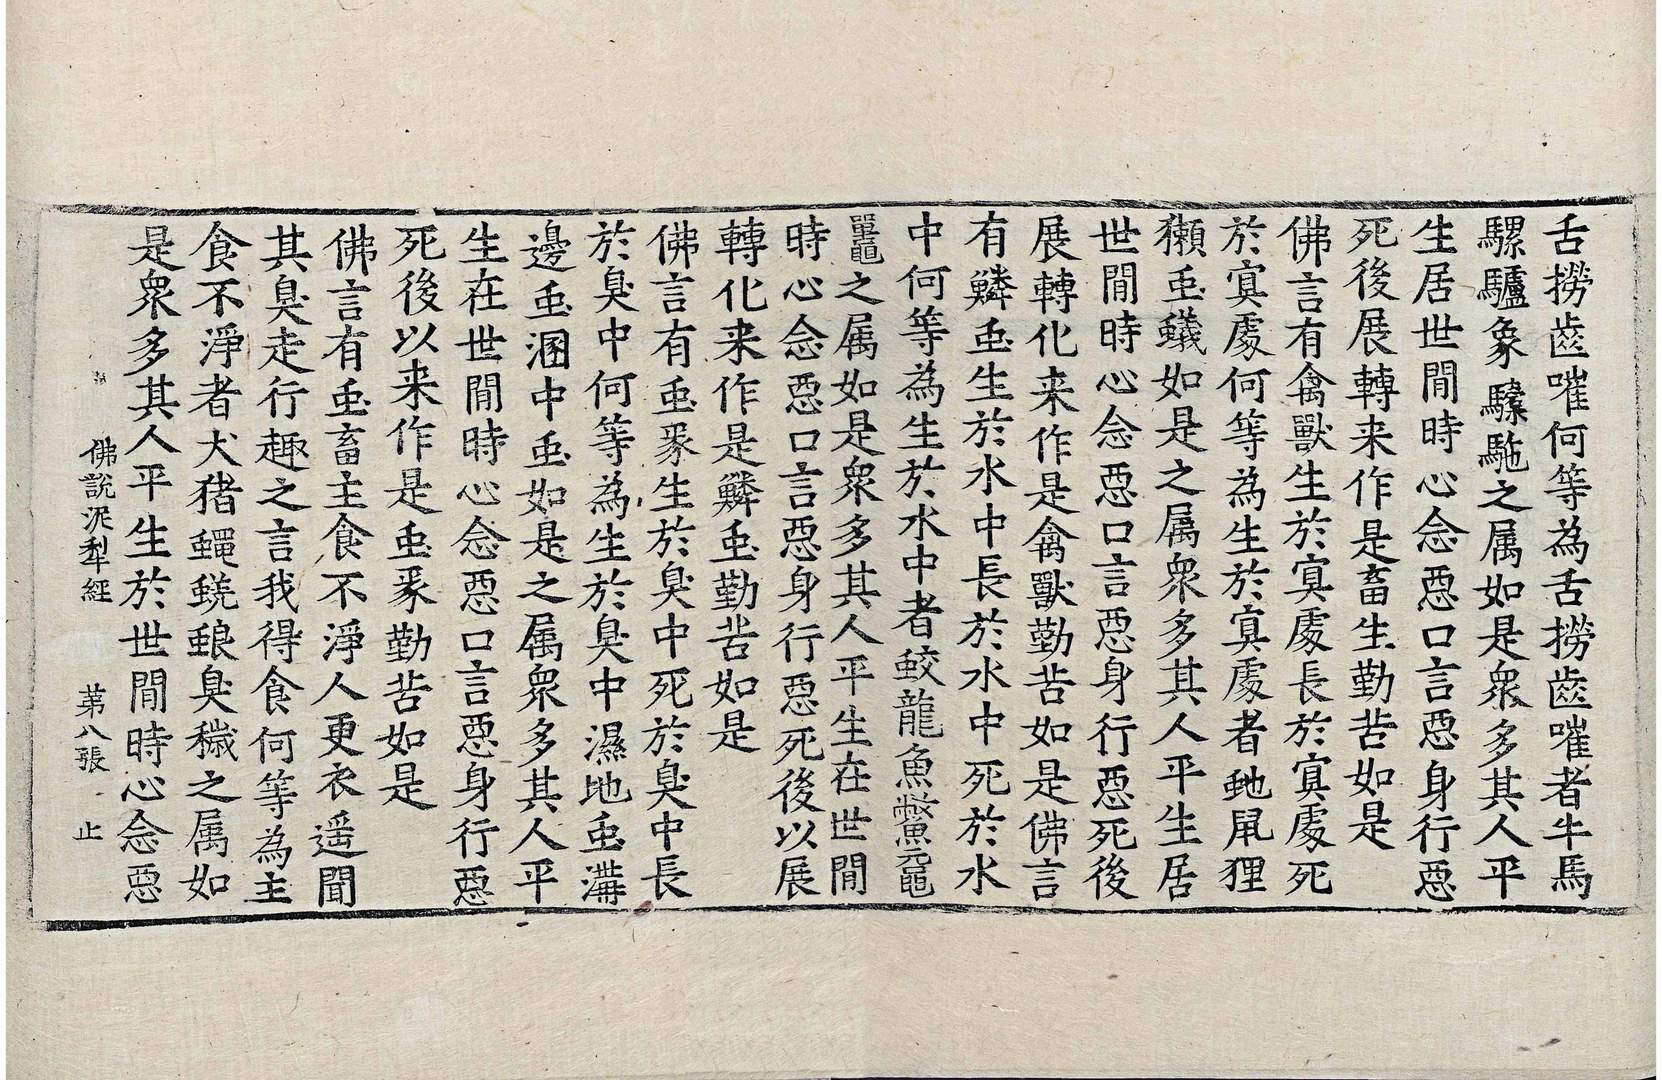 舌撈齒嗺何等為舌撈齒嗺者牛馬
騾驢象騾駞之属如是衆多其人平
生居世間時心念惡口言惡身行惡
死後展轉来作是畜生勤苦如是
佛言有禽獸生於㝠處長於㝠處死
於㝠處何等為生於㝠處者虵鼠狸
獺䖝蟻如是之属衆多其人平生居
世間時心念惡口言惡身行惡死後
展轉化来作是禽獸勤苦如是佛言
有鱗䖝生於水中長於水中死於水
中何等為生於水中者蛟龍魚鱉黿
鼉之属如是衆多其人平生在世間
時心念惡口言惡身行惡死後以展
轉化来作是鱗䖝勤苦如是
佛言有䖝豕生於臭中死於臭中長
於臭中何等為生於臭中濕地䖝溝
邊䖝溷中䖝如是之属衆多其人平
生在世間時心念惡口言惡身行惡
死後以来作是䖝豕勤苦如是
佛言有䖝畜主食不淨人更衣遥聞
其臭走行趣之言我得食何等為主
食不淨者犬猪蠅蜣蜋臭穢之属如
是衆多其人平生於世間時心念惡
佛說泥犁經 苐八張 止